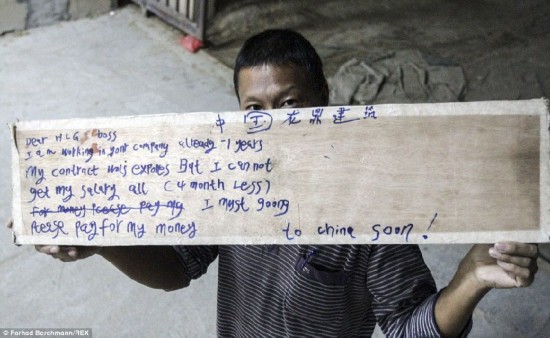 中国 鼎建
Dear HLG boss
I am working in your company already -1 years
My contract expores But I can not
get my salary all (4 month Less)
For money Please pay my I must goong
Please pay for my money to chine soon!
© Farhad Berchmann/REX